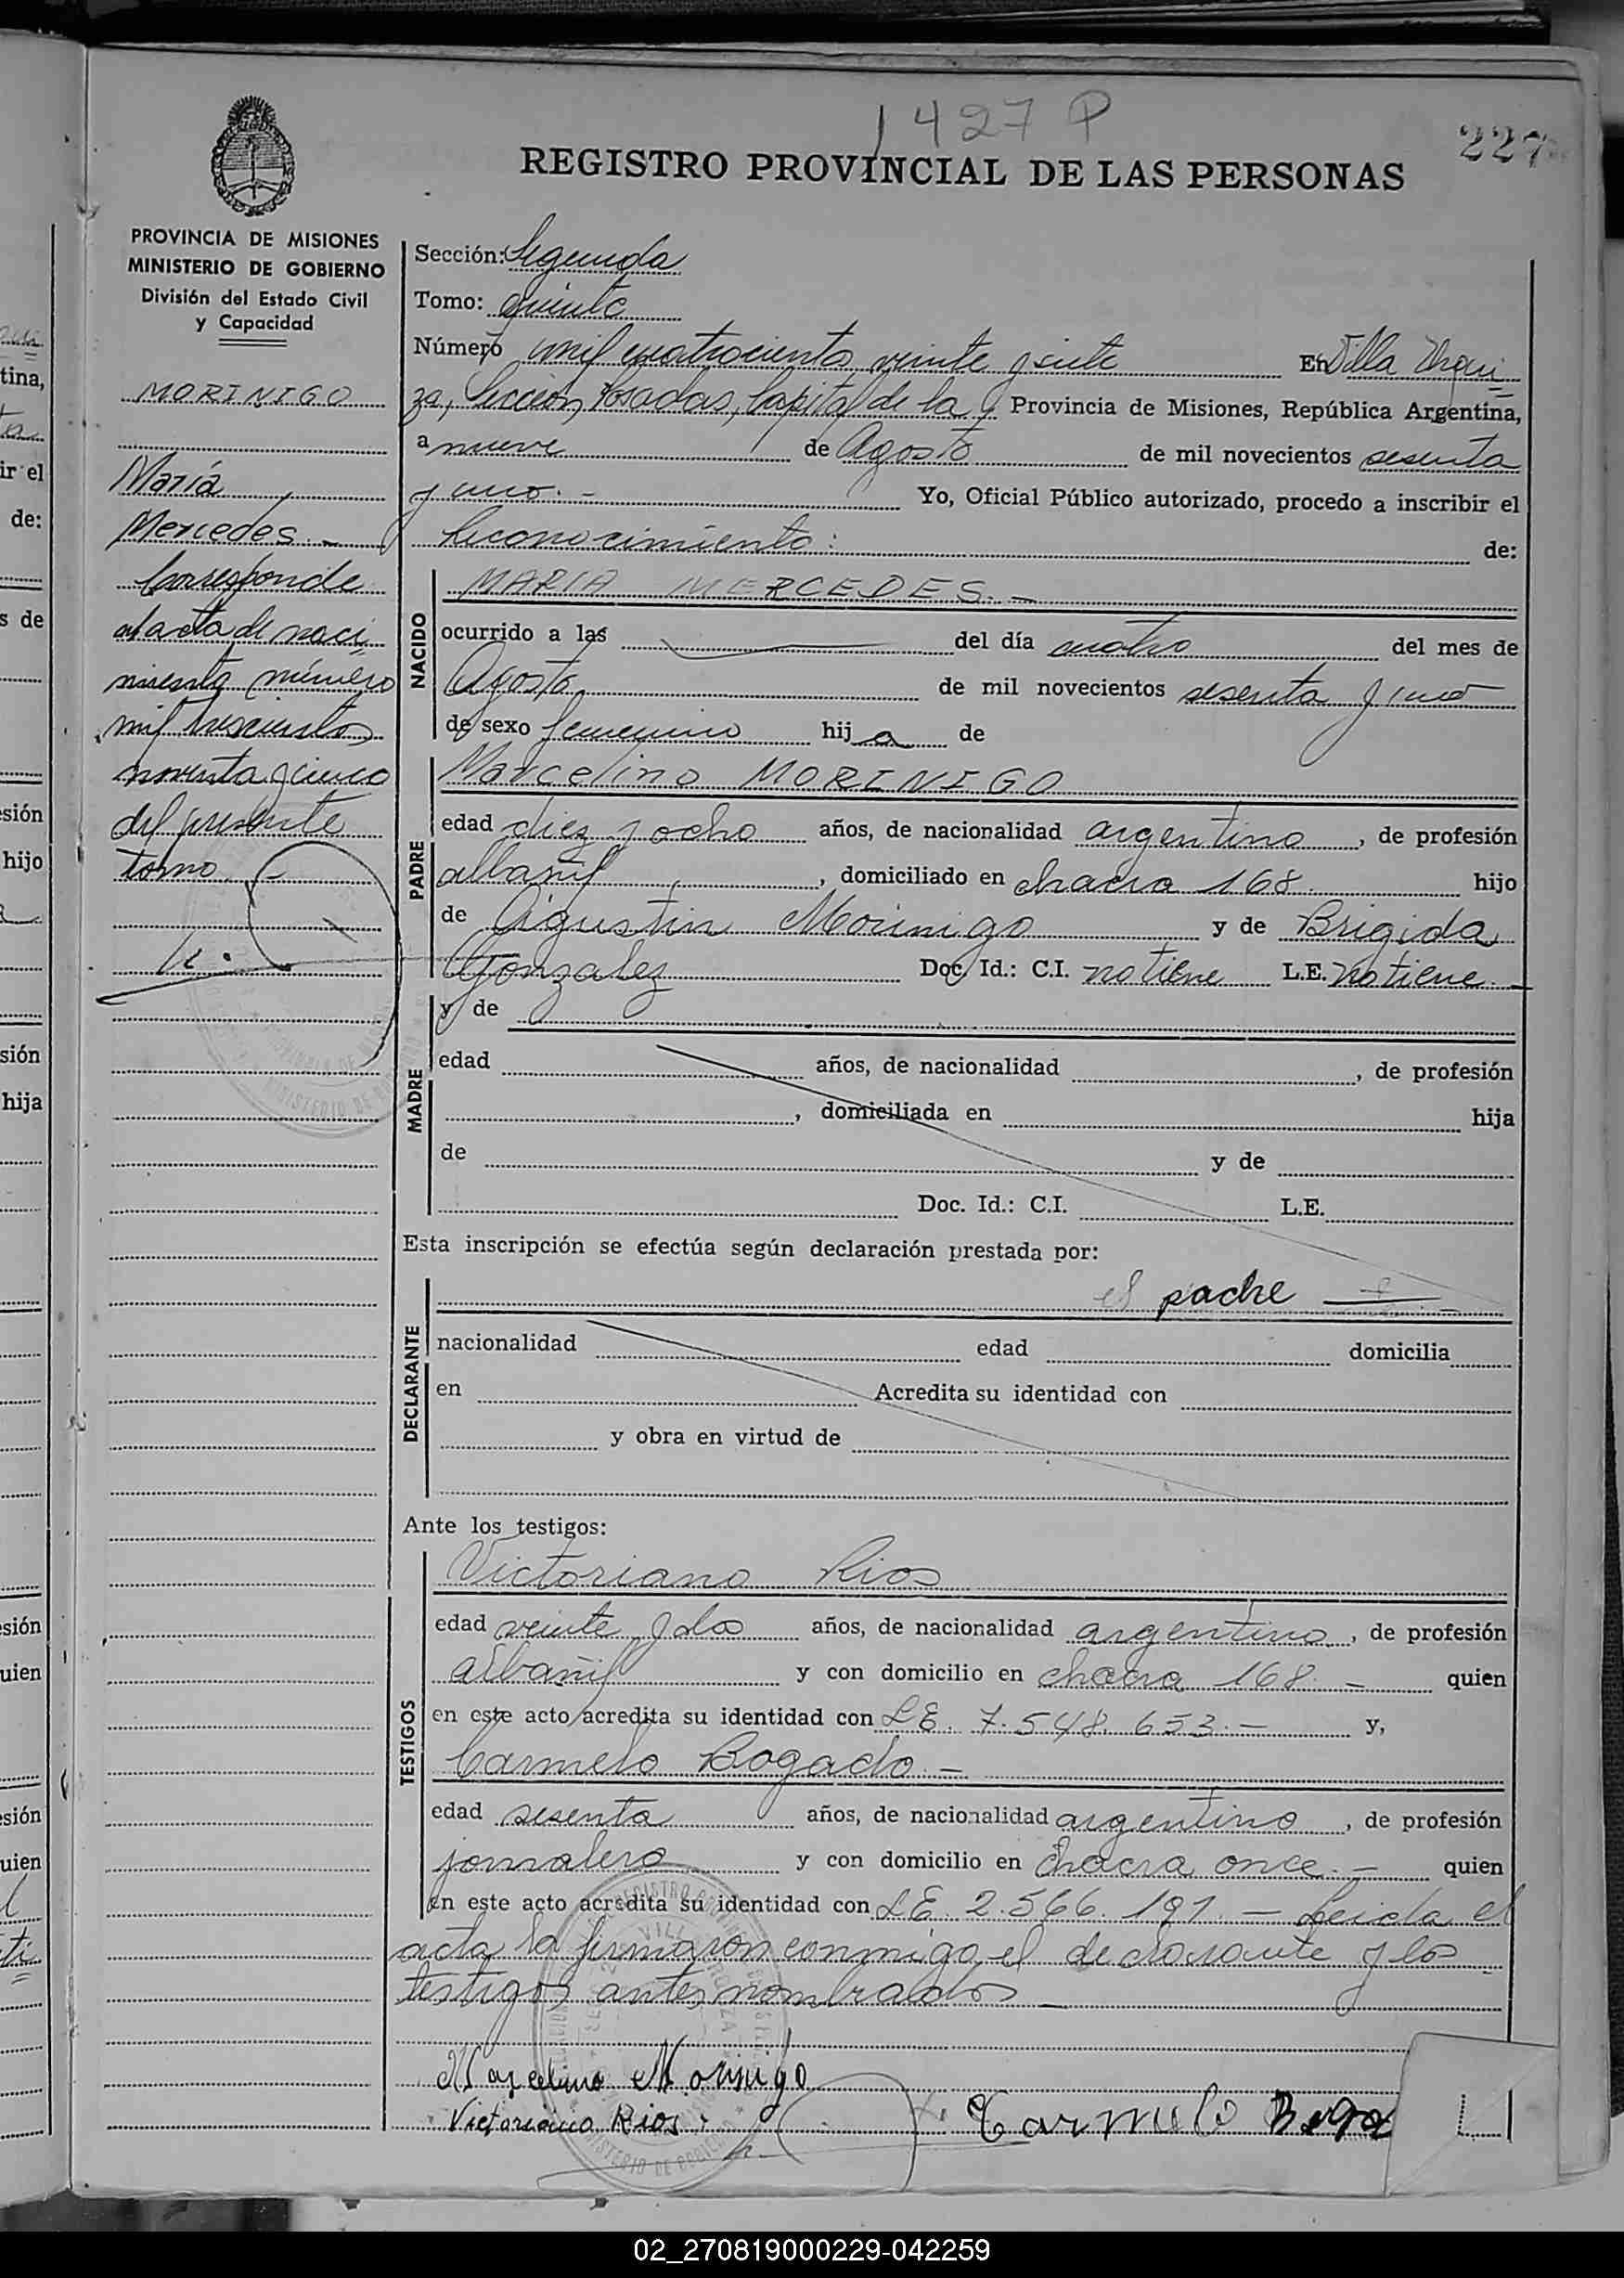 1427 P
227
REGISTRO PROVINCIAL DE LAS PERSONAS
PROVINCIA DE MISIONES
MINISTERIO DE GOBIERNO
División del Estado Civil
y Capacidad
MORINIGO
María
Mercedes. -
Corresponde
al acta de naci
miento número
mil trescientos
noventa y cinco
del presente
tomo. -
Sección: Segunda
Tomo: quinto
Número mil cuatrocientos veinte y siete En Villa Urqui
za, Sección, Posadas, Capital de la Provincia de Misiones, República Argentina,
a nueve de Agosto de mil novecientos sesenta
y uno. - Yo, Oficial Público autorizado, procedo a inscribir el
Reconocimiento: de:
NACIDO
MARIA MERCEDES. -
ocurrido a las del día cuatro del mes de
Agosto de mil novecientos sesenta y uno
de sexo femenino hij a de
PADRE
Marcelino MORINIGO
edad diez y ocho años, de nacionalidad argentino, de profesión
albañil, domiciliado en chacra 168 hijo
de Agustin Morinigo y de Brigida
Gonzalez Doc. Id.: C.I. no tiene L.E. no tiene. -
MADRE
y de
edad años, de nacionalidad , de profesión
, domiciliada en hija
de y de
Doc. Id.: C.I. L.E.
Esta inscripción se efectúa según declaración prestada por:
el padre
DECLARANTE
nacionalidad edad domicilia
en Acredita su identidad con
y obra en virtud de
Ante los testigos:
TESTIGOS
Victoriano Rios
edad veinte y dos años, de nacionalidad argentino, de profesión
albañil y con domicilio en chacra 168. - quien
en este acto acredita su identidad con L.E. 7.548.653. - y,
Carmelo Bogado. -
edad sesenta años, de nacionalidad argentino, de profesión
jornalero y con domicilio en chacra once. - quien
en este acto acredita su identidad con L.E. 2.566.191. - Leida el
acta la firmaron conmigo el declarante y los
testigos antes nombrados -
Marcelino Morinigo
Victoriano Rios.
Carmelo Boga
02_270819000229-042259